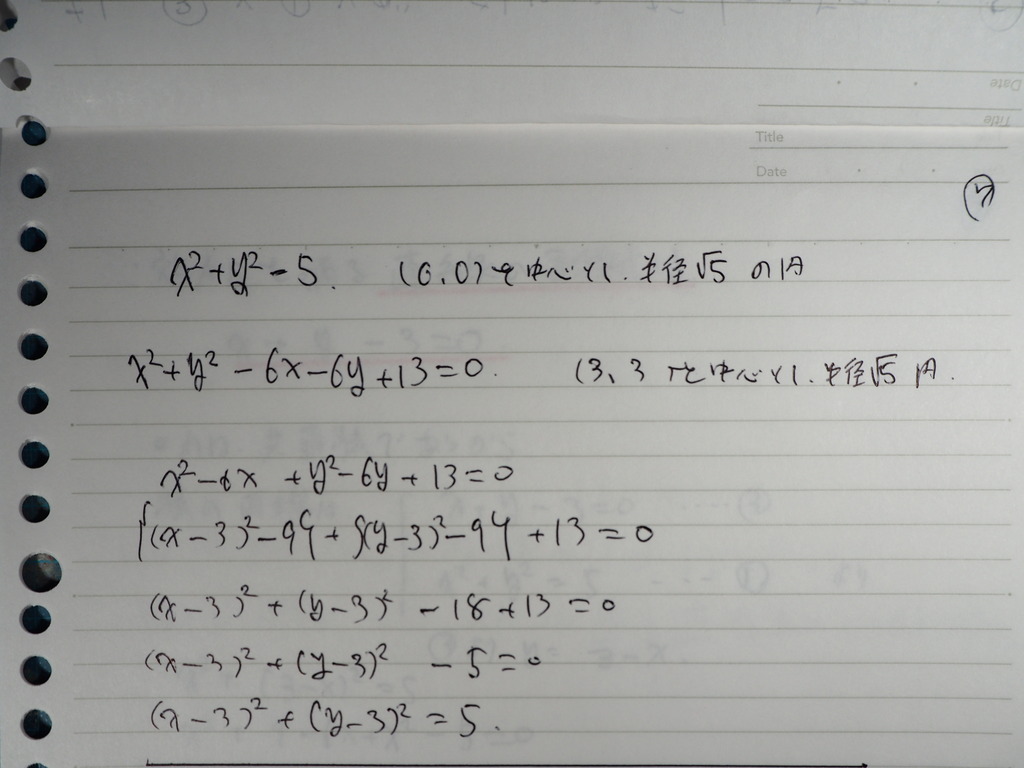 Title
Date
x² + y² - 5. (0,0)を中心とし.半径√5 の円
x² + y² - 6x - 6y + 13 = 0. (3、3)を中心とし.半径√5 円.
x² - 6x + y² - 6y + 13 = 0
{(x - 3)² - 9} + {(y - 3)² - 9} + 13 = 0
(x - 3)² + (y - 3)² - 18 + 13 = 0
(x - 3)² + (y - 3)² - 5 = 0
(x - 3)² + (y - 3)² = 5.